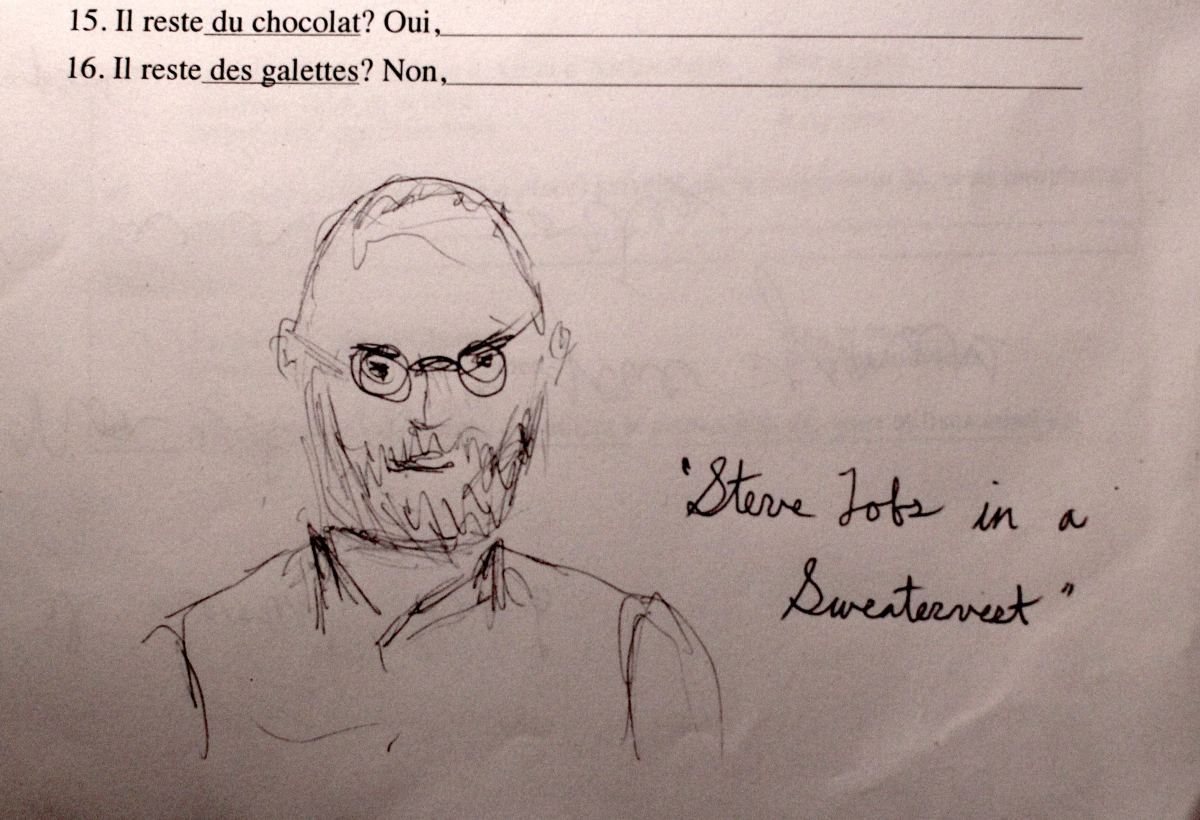 15. Il reste du chocolat? Oui,
16. Il reste des galettes? Non,
"Steve Jobs in a
Sweatervest"